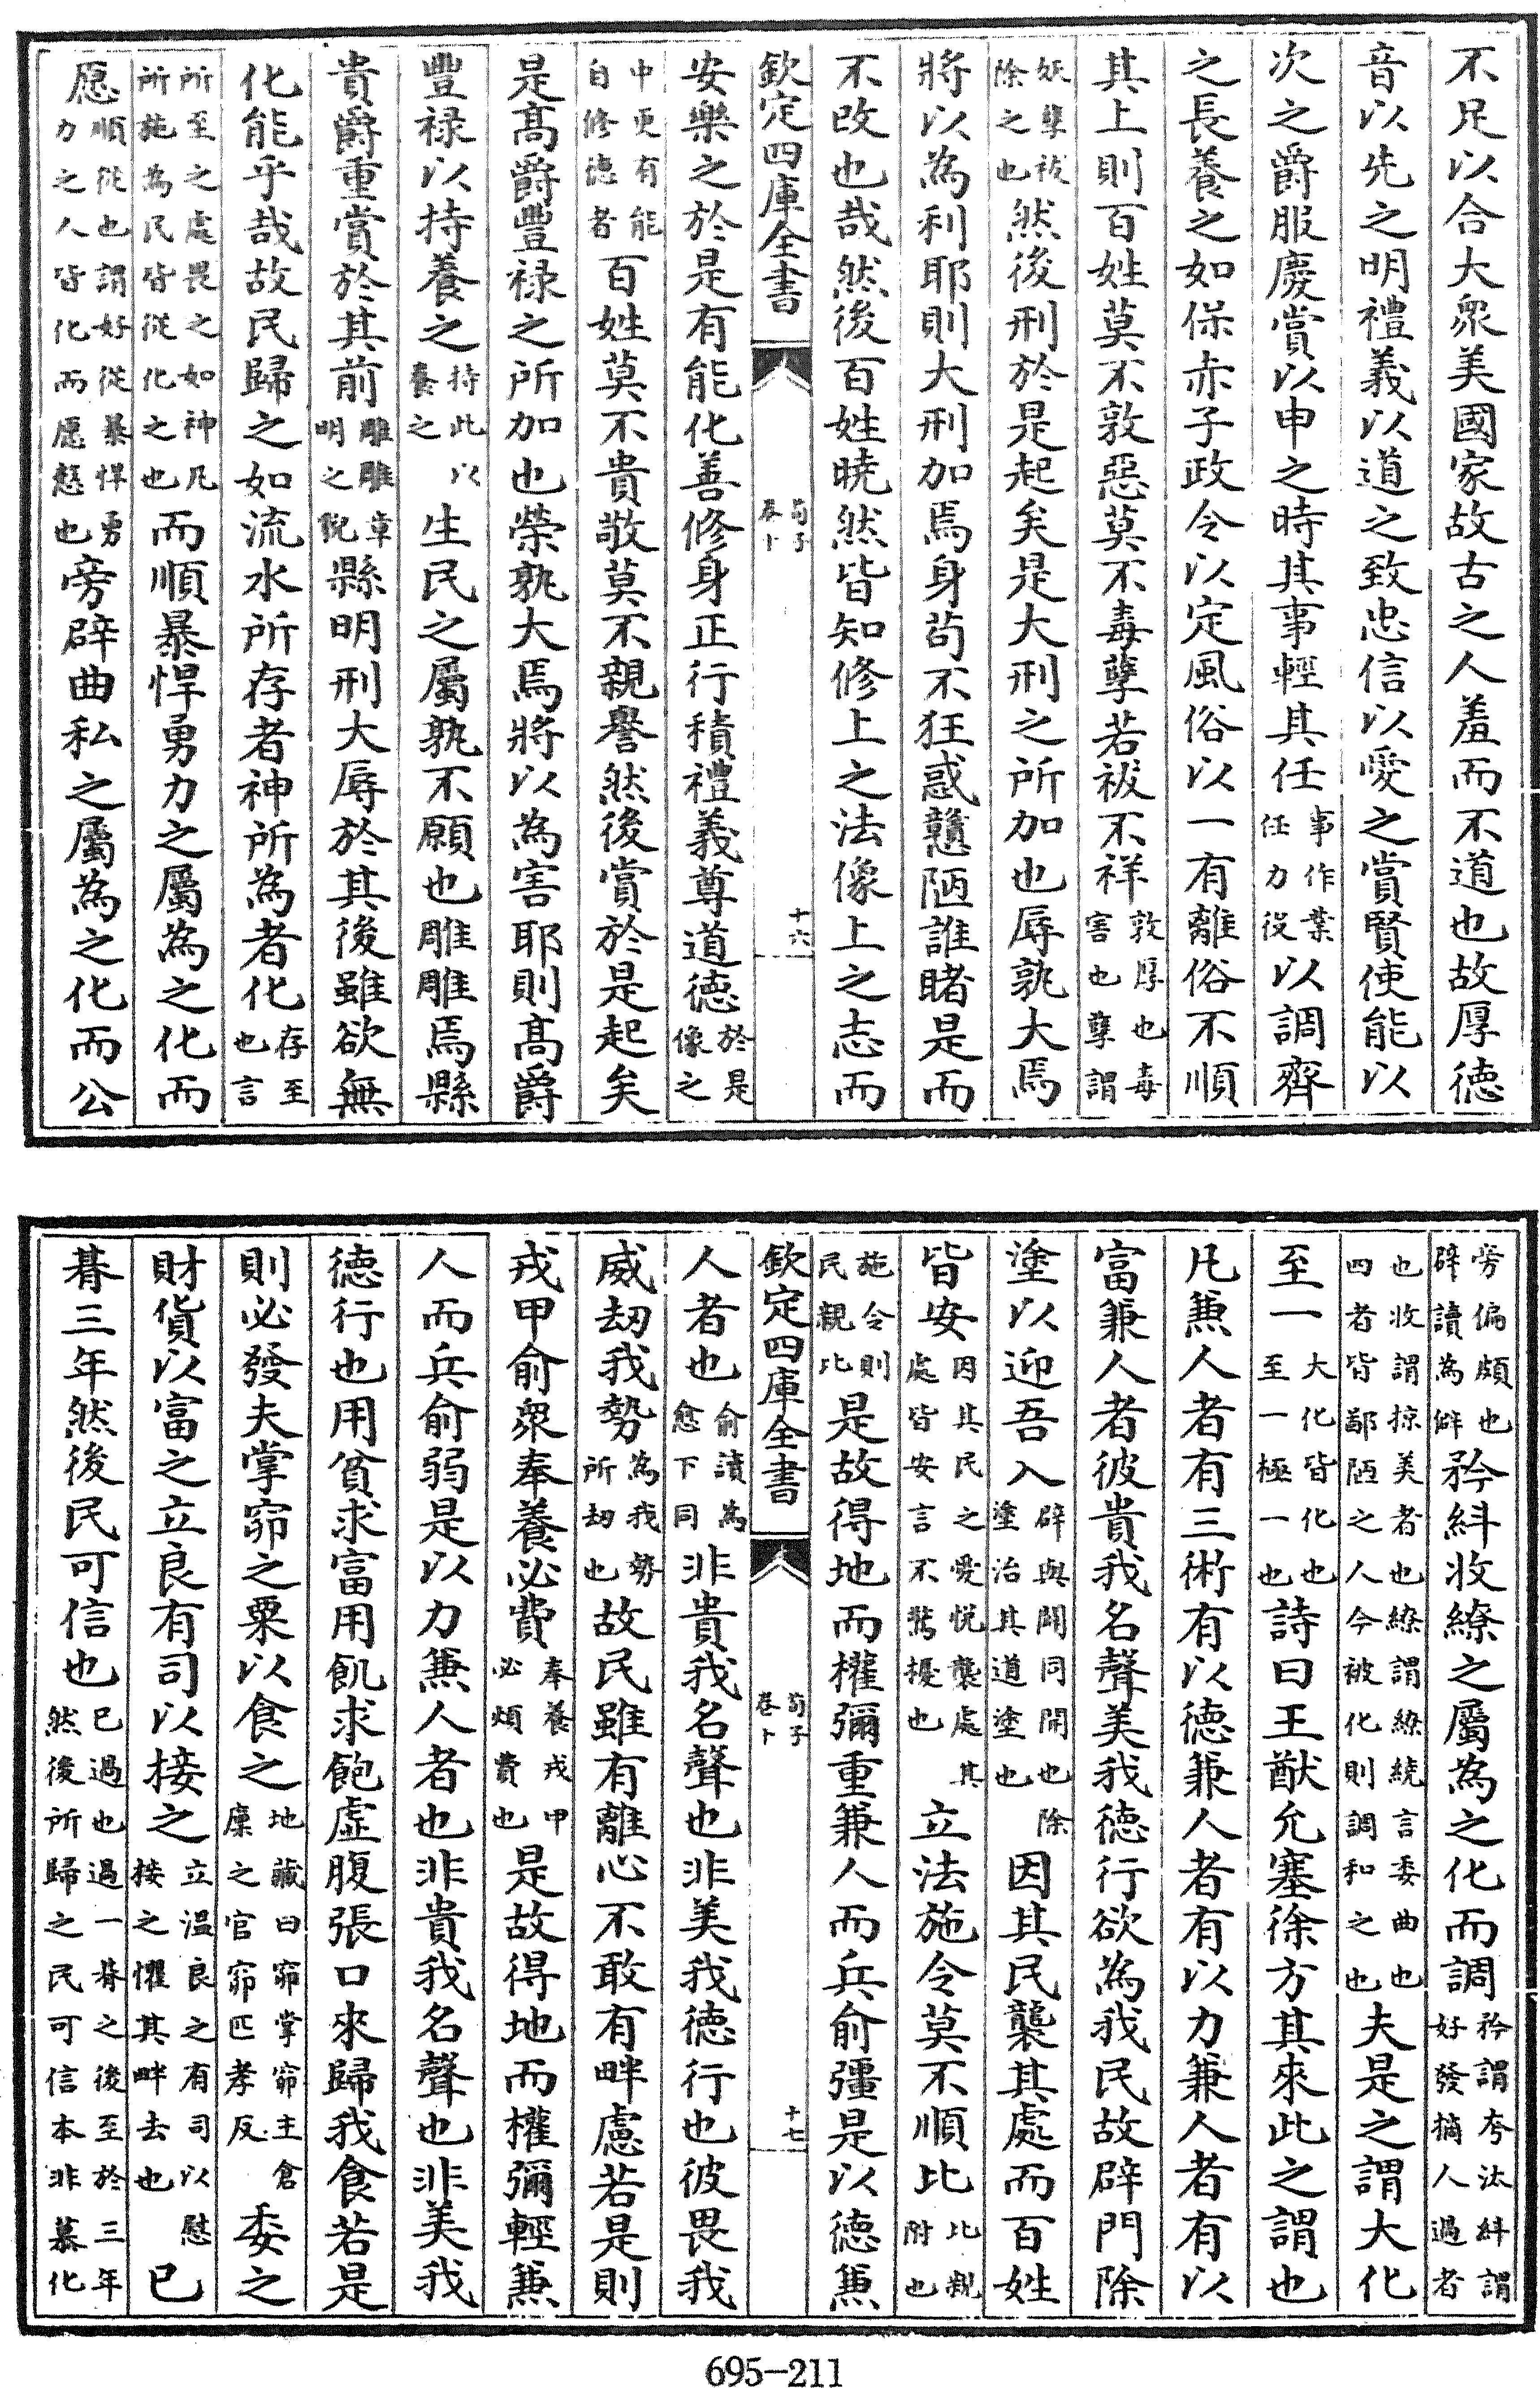 不足以合大衆美國家故古之人羞而不道也故厚德
音以先之明禮義以道之致忠信以愛之賞賢使能以
次之爵服慶賞以申之時其事輕其任事作業任力役以調齊
之長養之如保赤子政令以定風俗以一有離俗不順
其上則百姓莫不敦惡莫不毒孽若祓不祥敦厚也毒害也孽謂
妖孽祓除之也然後刑於是起矣是大刑之所加也辱孰大焉
將以為利耶則大刑加焉身苟不狂惑戇陋誰睹是而
不改也哉然後百姓曉然皆知修上之法像上之志而
欽定四庫全書 荀子卷十 十六
安樂之於是有能化善修身正行積禮義尊道德於是像之
中更有能自修德者百姓莫不貴敬莫不親譽然後賞於是起矣
是髙爵豐祿之所加也榮孰大焉將以為害耶則髙爵
豐祿以持養之持此以養之生民之屬孰不願也雕雕焉縣
貴爵重賞於其前雕雕章明之貌縣明刑大辱於其後雖欲無
化能乎哉故民歸之如流水所存者神所為者化存至也言
所至之處畏之如神凡所施為民皆從化之也而順暴悍勇力之屬為之化而
愿順從也謂好從暴悍勇力之人皆化而愿慤也旁辟曲私之屬為之化而公
旁偏頗也辟讀為僻矜糾收繚之屬為之化而調矜謂夸汰糾謂好發摘人過者
也收謂掠美者也繚謂繚繞言委曲也四者皆鄙陋之人今被化則調和之也夫是之謂大化
至一大化皆化也至一極一也詩曰王猷允塞徐方其來此之謂也
凡兼人者有三術有以德兼人者有以力兼人者有以
富兼人者彼貴我名聲美我德行欲為我民故辟門除
塗以迎吾入辟與闢同開也除塗治其道塗也因其民襲其處而百姓
皆安因其民之愛悅襲處其處皆安言不驚擾也立法施令莫不順比比親附也
施令則民親比是故得地而權彌重兼人而兵俞彊是以德兼
欽定四庫全書 荀子卷十 十七
人者也俞讀為愈下同非貴我名聲也非美我德行也彼畏我
威劫我勢為我勢所劫也故民雖有離心不敢有畔慮若是則
戎甲俞衆奉養必費奉養戎甲必煩費也是故得地而權彌輕兼
人而兵俞弱是以力兼人者也非貴我名聲也非美我
德行也用貧求富用飢求飽虛腹張口來歸我食若是
則必發夫掌窌之粟以食之地藏曰窌掌窌主倉廩之官窌匹孝反委之
財貨以富之立良有司以接之立溫良之有司以慰接之懼其畔去也已
朞三年然後民可信也已過也過一朞之後至於三年然後所歸之民可信本非慕化
695-211